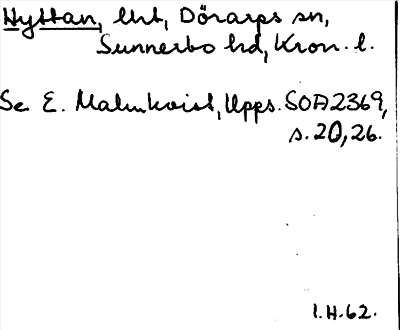 Hyttan, lht, Dörarps sn,
Sunnerbo hd, Kron. l.
Se E. Malmkvist, Upps. SOA2369,
s. 20, 26.
I.H.62.